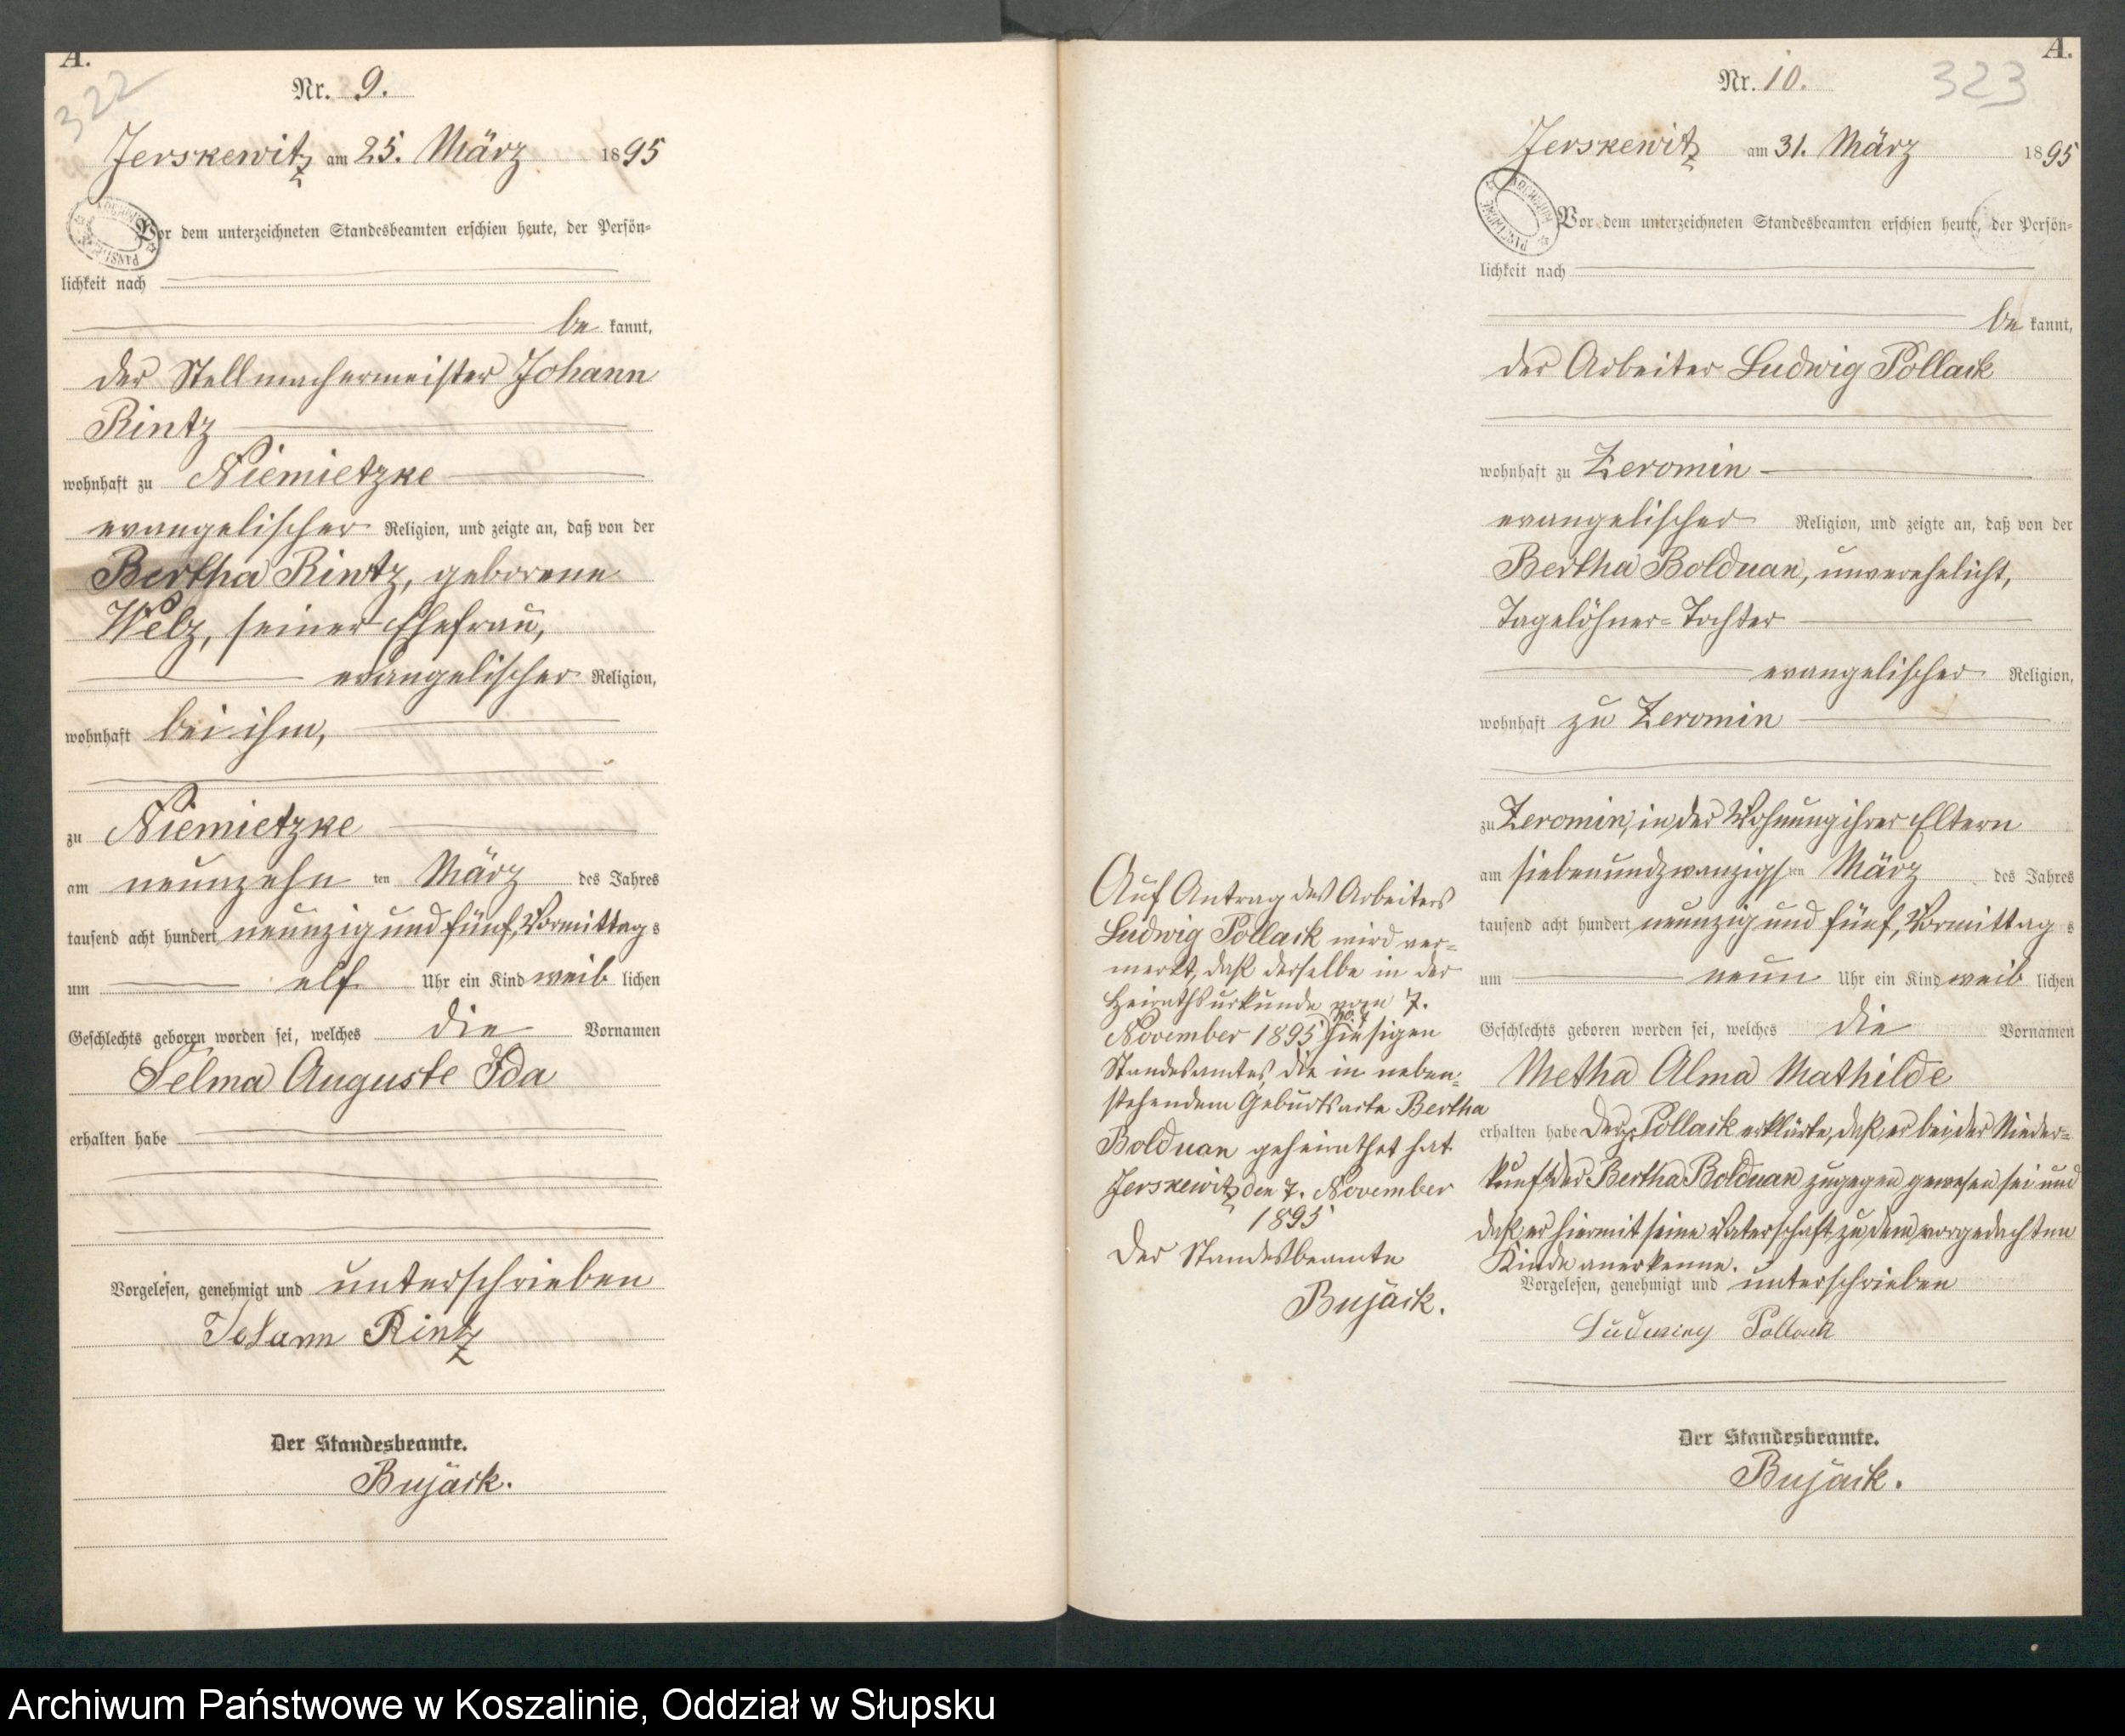 A.
322
Nr. 9.
Jerskewitz am 25. März 1895
Vor dem unterzeichneten Standesbeamten erschien heute, der Persön-
lichkeit nach
be kannt,
der Stellmachermeister Johann
Rintz
wohnhaft zu Niemietzke
evangelischer Religion, und zeigte an, daß von der
Bertha Rintz, geborene
Welz, seiner Ehefrau,
evangelischer Religion,
wohnhaft bei ihm,
zu Niemietzke
am neunzehn ten März des Jahres
tausend acht hundert neunzig und fünf, Vormittag s
um elf Uhr ein Kind weib lichen
Geschlechts geboren worden sei, welches die Vornamen
Selma Auguste Ida
erhalten habe
Vorgelesen, genehmigt und unterschrieben
Johann Rintz
Der Standesbeamte.
Bujack.
A.
323
Nr. 10.
Jerskewitz am 31. März 1895
Vor dem unterzeichneten Standesbeamten erschien heute, der Persön-
lichkeit nach
be kannt,
der Arbeiter Ludwig Pollack
wohnhaft zu Zeromin
evangelischer Religion, und zeigte an, daß von der
Bertha Bolduan, unverehelicht,
Tagelöhner-Tochter
evangelischer Religion,
wohnhaft zu Zeromin
zu Zeromin, in der Wohnung ihrer Eltern
am siebenundzwanzigs ten März des Jahres
tausend acht hundert neunzig und fünf, Vormittag s
um neun Uhr ein Kind weib lichen
Geschlechts geboren worden sei, welches die Vornamen
Metha Alma Mathilde
erhalten habe Der Pollack erklärte, daß er bei der Nieder-
kunft der Bertha Bolduan zugegen gewesen sei und
daß er hiermit seine Vaterschaft zu dem vorgedachten
Kinde anerkenne.
Vorgelesen, genehmigt und unterschrieben
Ludwieg Pollack
Der Standesbeamte.
Bujack.
Auf Antrag des Arbeiters
Ludwig Pollack wird ver-
merkt, daß derselbe in der
Heirathsurkunde vom 7.
November 1895 No. 7 hiesigen
Standesamtes, die in neben-
stehendem Geburtsacte Bertha
Bolduan geheirathet hat.
Jerskewitz den 7. November
1895
Der Standesbeamte
Bujack.
Archiwum Państwowe w Koszalinie, Oddział w Słupsku